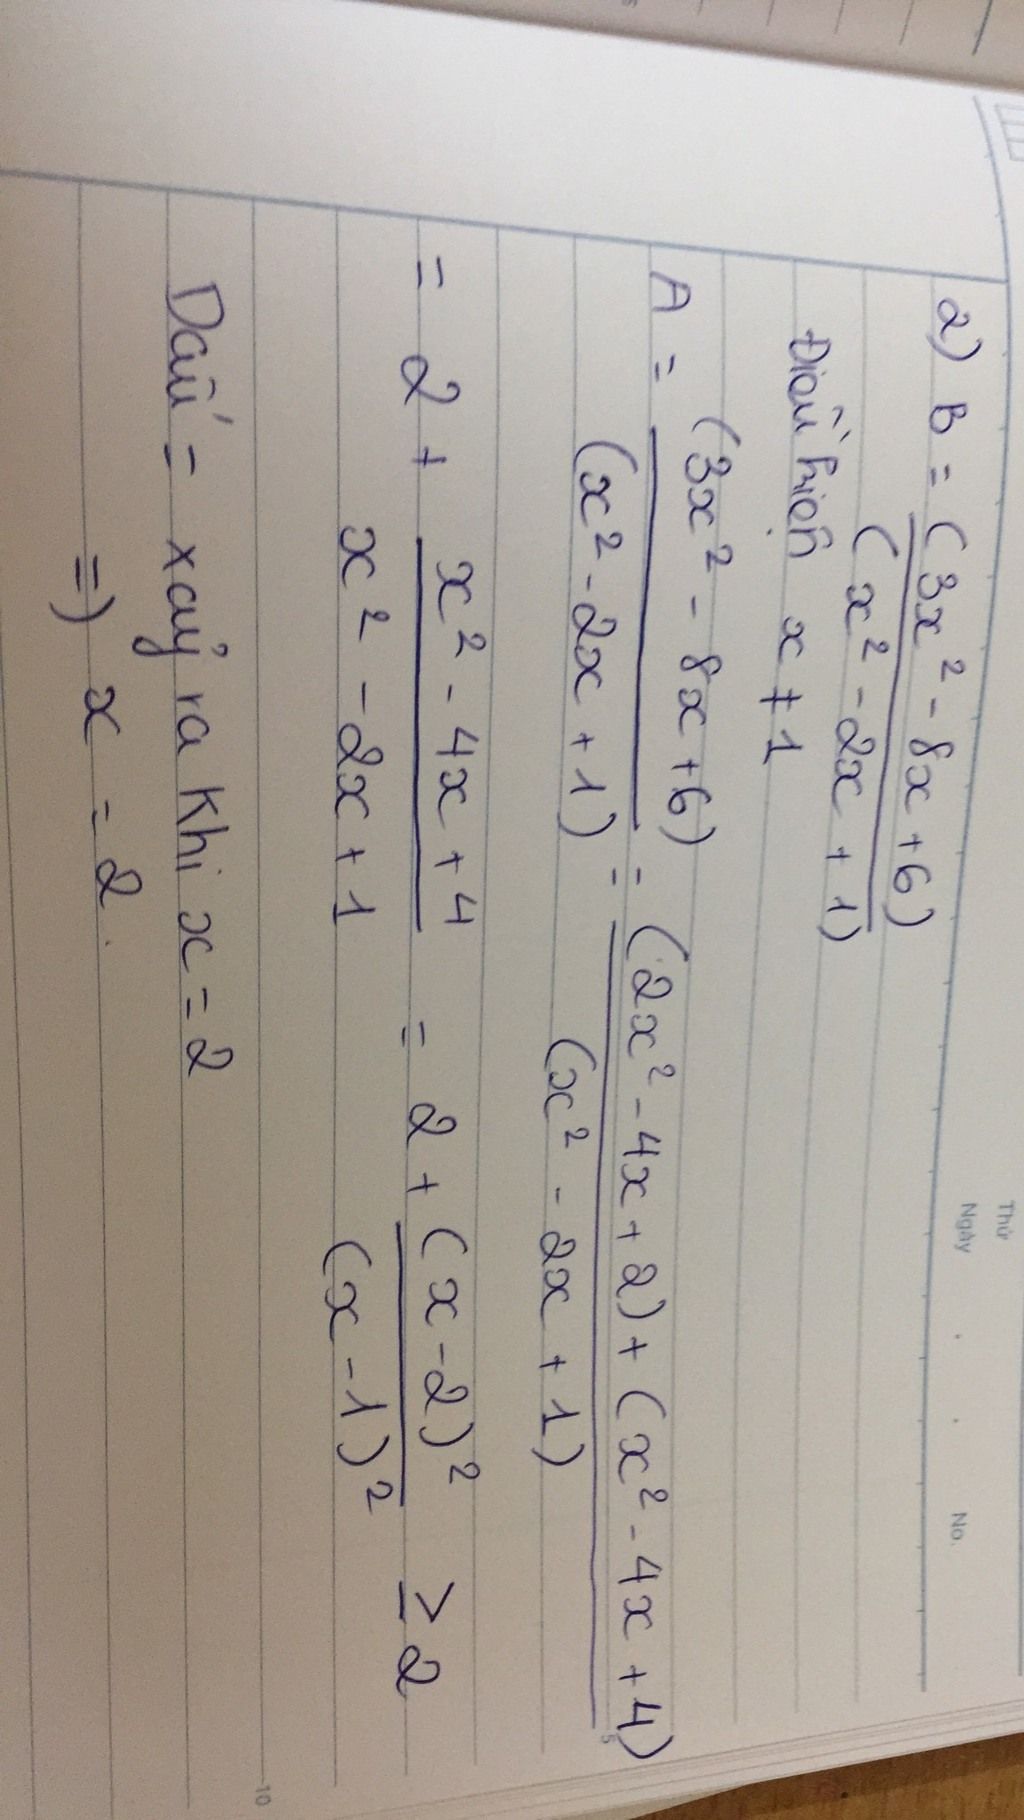 Thứ
Ngày . . No.
2) B = (3x² - 8x + 6) / (x² - 2x + 1)
Điều kiện x ≠ 1
A = (3x² - 8x + 6) / (x² - 2x + 1) = (2x² - 4x + 2) + (x² - 4x + 4) / (x² - 2x + 1)
5
= 2 + x² - 4x + 4 / x² - 2x + 1 = 2 + (x - 2)² / (x - 1)² ≥ 2
Dấu = xảy ra khi x = 2
=) x = 2.
10